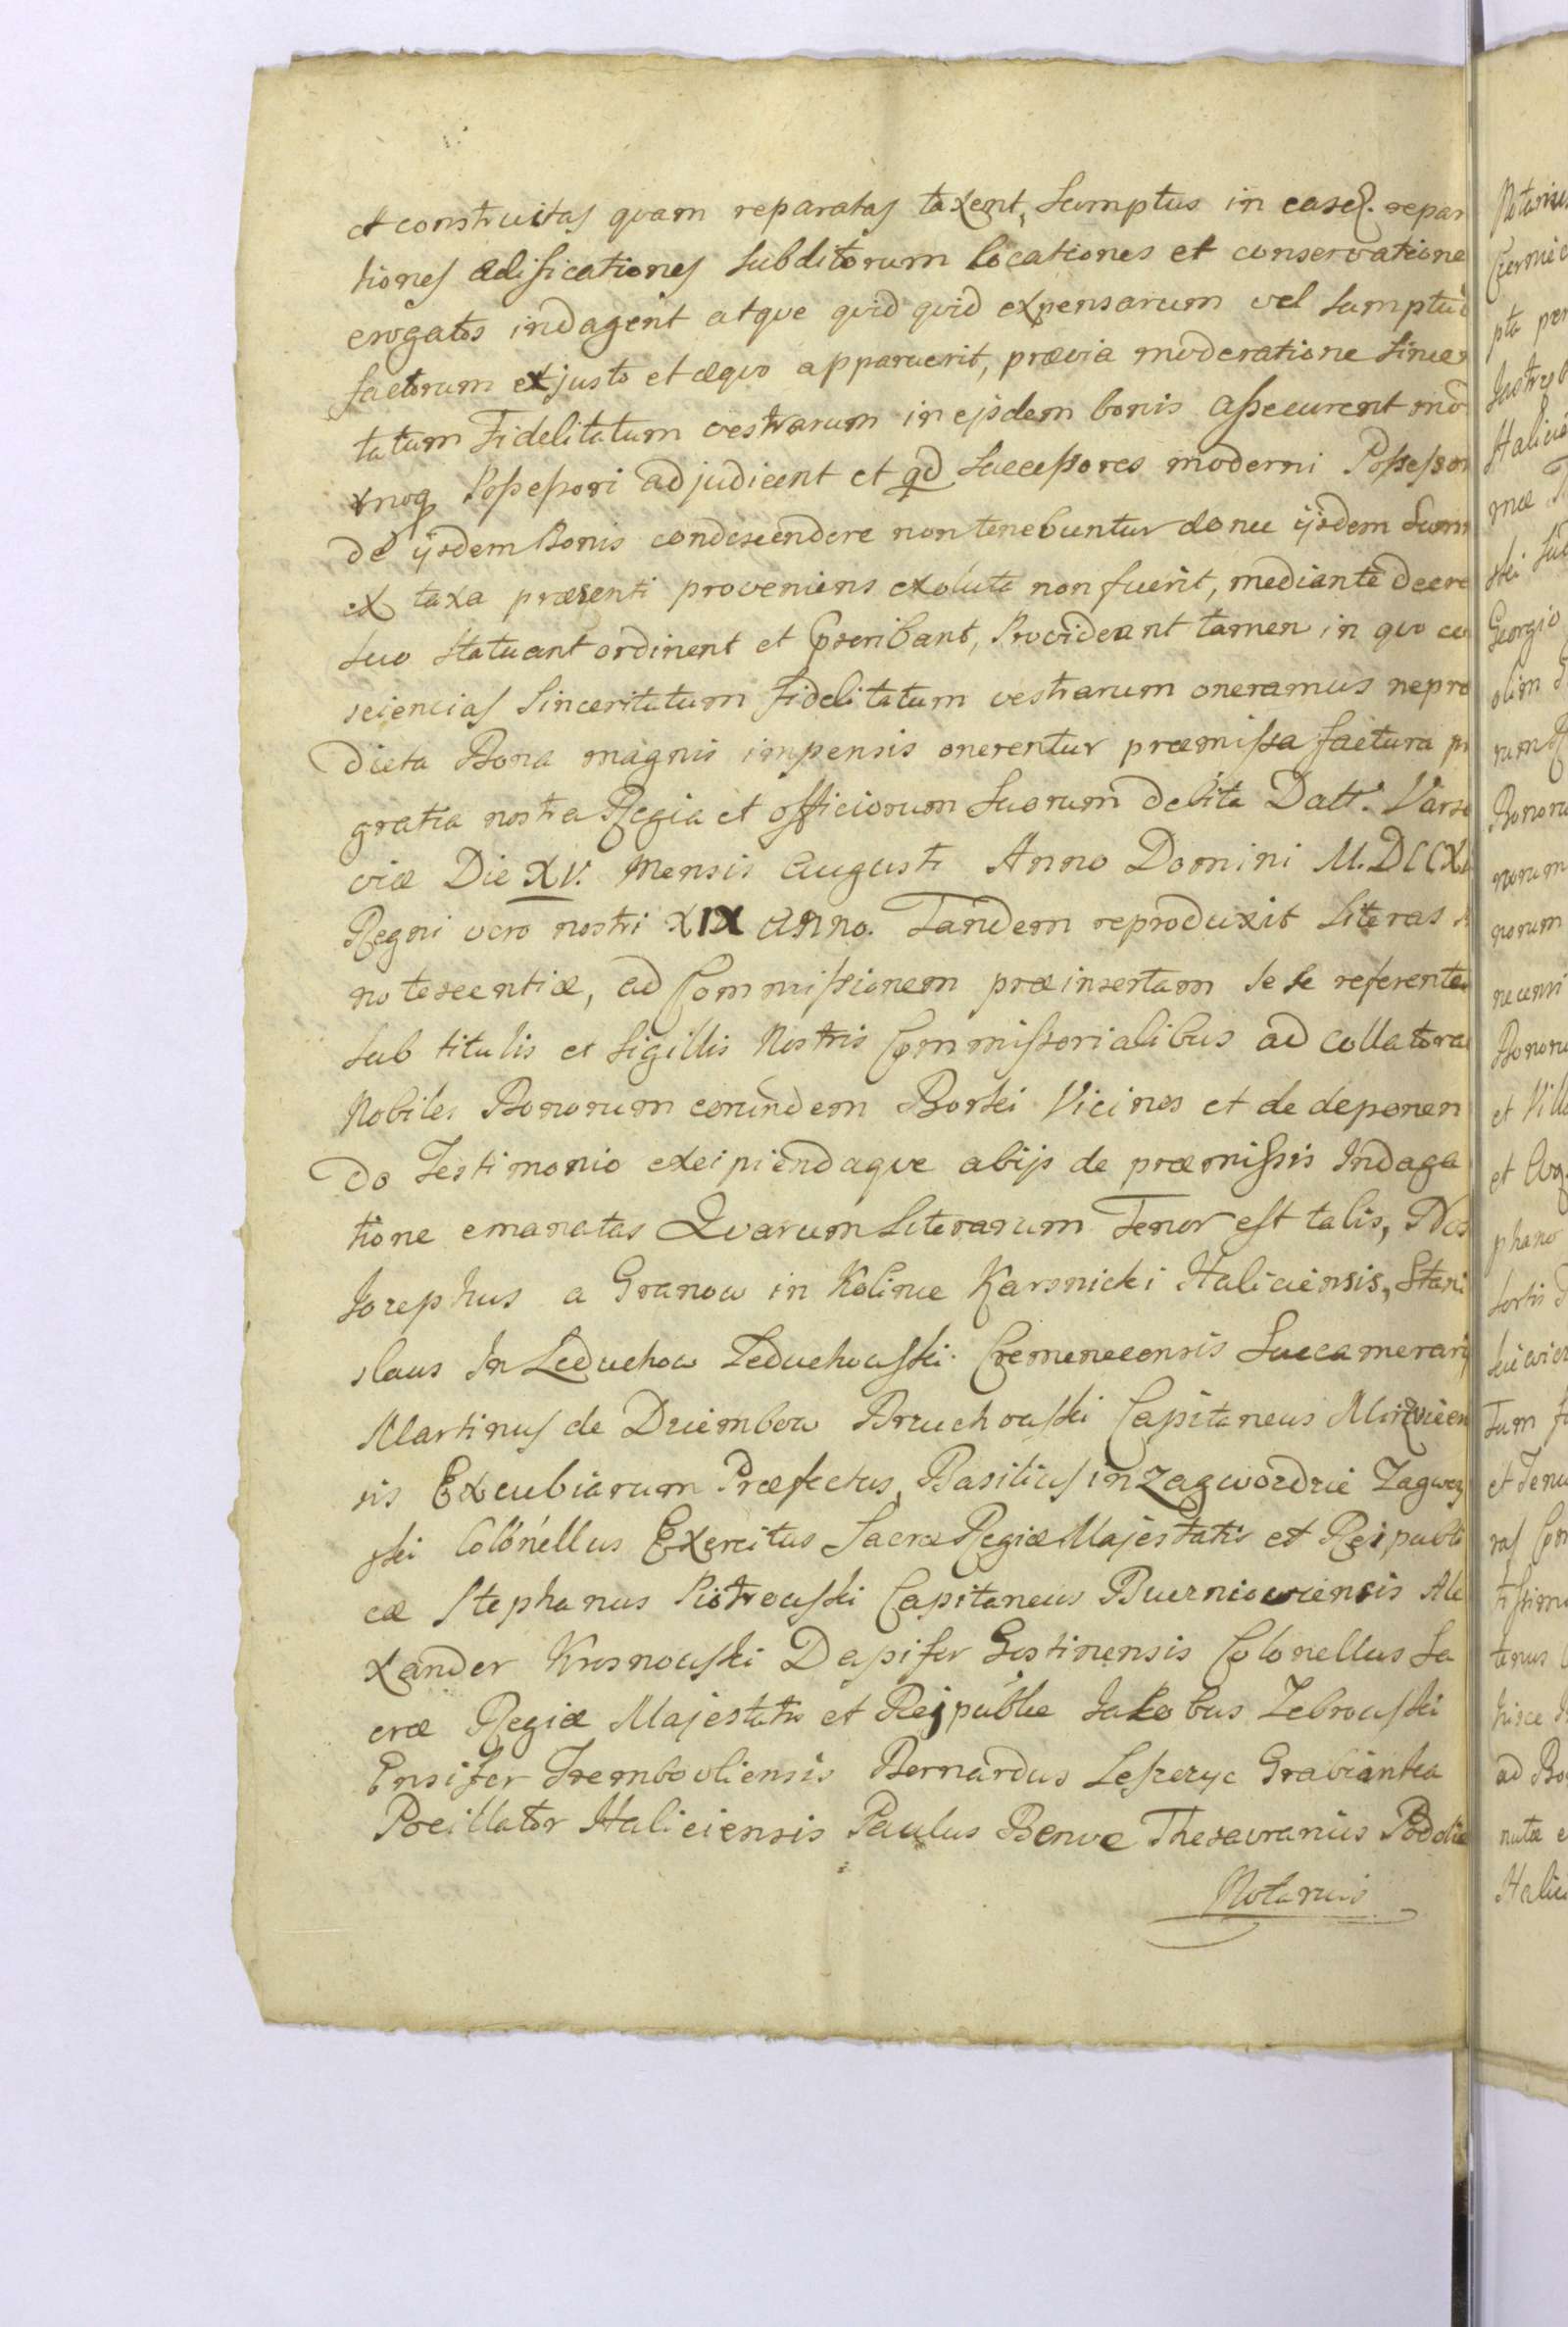 et construitas quam reparatas taxent, Sumptus in easq. repar
tiones ædificationes Subditorum locationes et conservatione
erogatos indagent atque quid quid expensarum vel Sumptu
factorum ex justo et æquo apparuerit, prævia moderatione Sincer
tatum Fidelitatum vestrarum in ejsdem bonis assecurent mo
rnoq Possessori adjudicent et qd Successores moderni Possessor
de ijsdem Bonis condescendere non tenebuntur donec ijsdem Sum
ex taxa præsenti proveniens exoluta non fuerit, mediante decre
Suo Statuant ordinent et Conscribant, Provideant tamen in quo co
sciencias Sinceritatum Fidelitatum vestrarum oneramus ne præ
dicta Bona magnis impensis onerentur præmissa factura p
gratia nostra Regia et officiorum Suorum debita Datt. Varso
viæ Die XV. Mensis Augusti Anno Domini M.DCCX
Regni vero nostri XIX anno. Tandem reproduxit Literas
notescentiæ, ad Commissionem præinsertam se se referente
Sub titulis et Sigillis Nostris Commissorialibus ad collatera
Nobiles Bonorum eorundem Borki Vicinos et de deponen
do Testimonio excipiendaque ab ijs de præmissis Indaga
tione emanatas Quarum Literarum Tenor est talis, Nos
Josephus a Granow in Kolince Karsnicki Haliciensis, Stani
slaus In Leduchow Leduchowski Cremenecensis Succamerarij
Martinus de Dziembow Bruchowski Capitaneus Mirzvicen
sis Excubiarum Præfectus, Basilius in Zagwozdzie Zagwoy
ski Colonellus Exercitus Sacræ Regiæ Majestatis et Reipubli
cæ Stephanus Piotrowski Capitaneus Buczniowiensis Ale
xander Krosnowski Dapifer Gostinensis Colonellus Sa
cræ Regiæ Majestatis et Reipublicæ Jakobus Zebrowski
Ensifer Trembovliensis Bernardus Leszczyc Grabianka
Pocillator Haliciensis Paulus Benoe Thesaurarius Podoliæ
Notarius